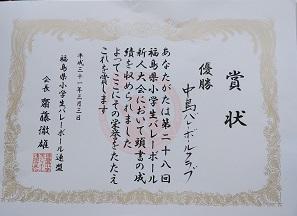 賞状
優勝
中島バレーボールクラブ
あなたがたは第二十八回
福島県小学生バレーボール
新人大会において頭書の成
績を収められました
よってここにその栄誉をたたえ
これを賞します
平成二十一年三月二日
福島県小学生バレーボール連盟
会長 齋藤徹雄